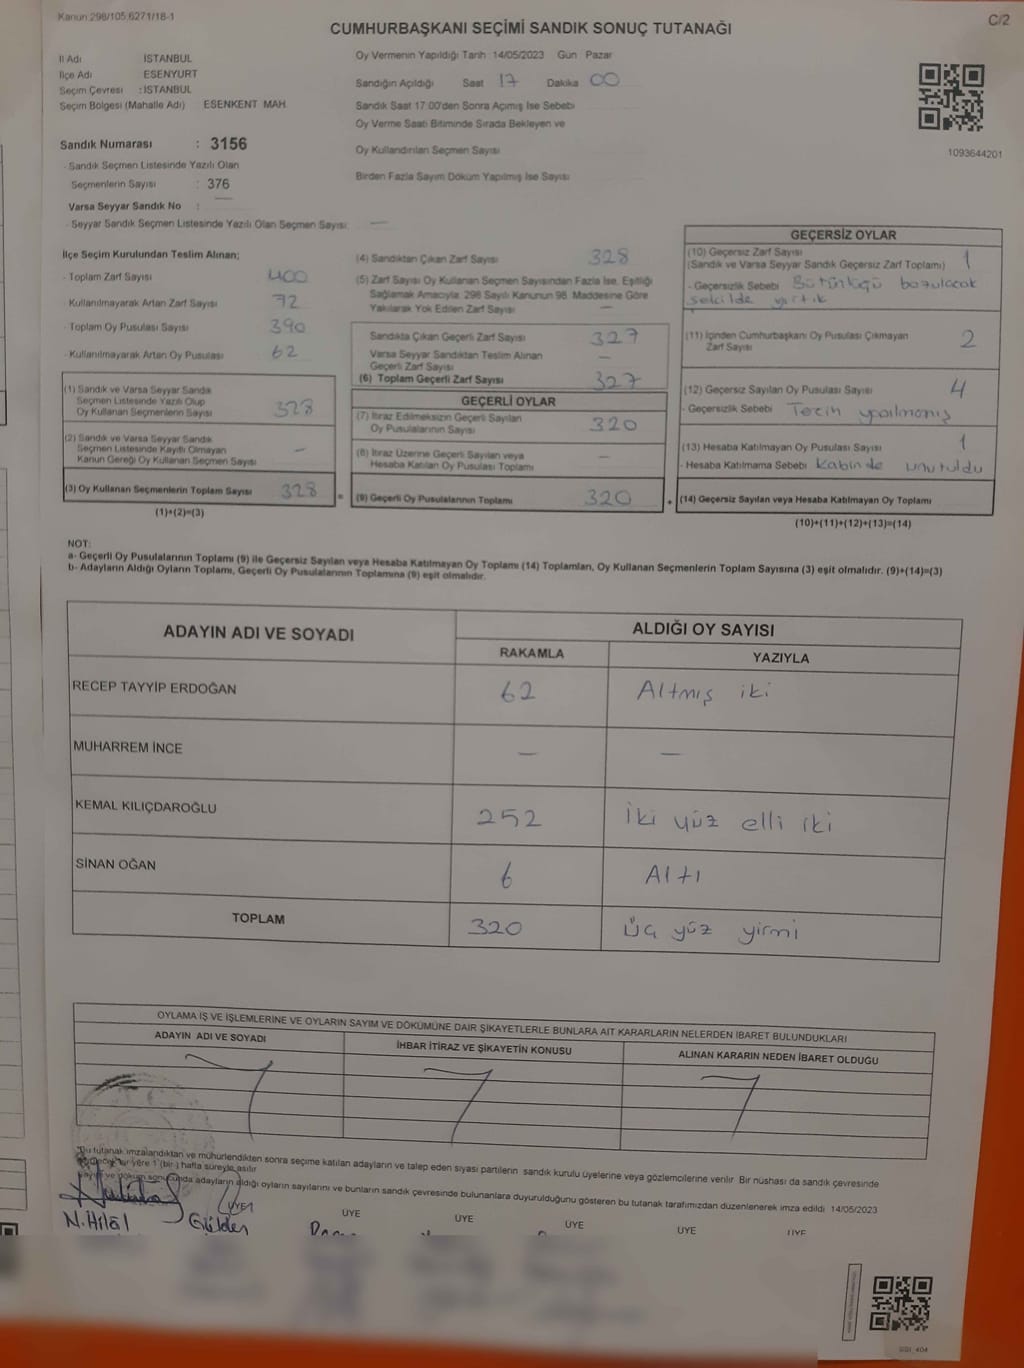 Kanun:298/105,6271/18-1
C/2
CUMHURBAŞKANI SEÇİMİ SANDIK SONUÇ TUTANAĞI
İl Adı İSTANBUL
İlçe Adı ESENYURT
Seçim Çevresi : İSTANBUL
Seçim Bölgesi (Mahalle Adı) ESENKENT MAH
Oy Vermenin Yapıldığı Tarih 14/05/2023 Gün Pazar
Sandığın Açıldığı Saat 17 Dakika 00
Sandık Saat 17:00'den Sonra Açımış İse Sebebi
Oy Verme Saati Bitiminde Sırada Bekleyen ve
Oy Kullandırılan Seçmen Sayısı
Birden Fazla Sayım Döküm Yapılmış İse Sayısı
1093644201
Sandık Numarası : 3156
- Sandık Seçmen Listesinde Yazılı Olan
Seçmenlerin Sayısı : 376
Varsa Seyyar Sandık No : —
- Seyyar Sandık Seçmen Listesinde Yazılı Olan Seçmen Sayısı: —
İlçe Seçim Kurulundan Teslim Alınan;
- Toplam Zarf Sayısı 400
- Kullanılmayarak Artan Zarf Sayısı 72
- Toplam Oy Pusulası Sayısı 390
- Kullanılmayarak Artan Oy Pusulası 62
(1) Sandık ve Varsa Seyyar Sandık
Seçmen Listesinde Yazılı Olup
Oy Kullanan Seçmenlerin Sayısı 328
(2) Sandık ve Varsa Seyyar Sandık
Seçmen Listesinde Kayıtlı Olmayan
Kanun Gereği Oy Kullanan Seçmen Sayısı —
(3) Oy Kullanan Seçmenlerin Toplam Sayısı 328 =
(1)+(2)=(3)
(4) Sandıktan Çıkan Zarf Sayısı 328
(5) Zarf Sayısı Oy Kullanan Seçmen Sayısından Fazla İse, Eşitliği
Sağlamak Amacıyla, 298 Sayılı Kanunun 98. Maddesine Göre
Yakılarak Yok Edilen Zarf Sayısı —
Sandıkta Çıkan Geçerli Zarf Sayısı 327
Varsa Seyyar Sandıktan Teslim Alınan
Geçerli Zarf Sayısı —
(6) Toplam Geçerli Zarf Sayısı 327
GEÇERLİ OYLAR
(7) İtiraz Edilmeksizin Geçerli Sayılan
Oy Pusulalarının Sayısı 320
(8) İtiraz Üzerine Geçerli Sayılan veya
Hesaba Katılan Oy Pusulası Toplamı —
(9) Geçerli Oy Pusulalarının Toplamı 320 +
GEÇERSİZ OYLAR
(10) Geçersiz Zarf Sayısı 1
(Sandık ve Varsa Seyyar Sandık Geçersiz Zarf Toplamı)
- Geçersizlik Sebebi Bütünlüğü bozulacak
şekilde yırtık
(11) İçinden Cumhurbaşkanı Oy Pusulası Çıkmayan
Zarf Sayısı 2
(12) Geçersiz Sayılan Oy Pusulası Sayısı 4
- Geçersizlik Sebebi Tercih yapılmamış
(13) Hesaba Katılmayan Oy Pusulası Sayısı 1
- Hesaba Katılmama Sebebi kabinde unutuldu
(14) Geçersiz Sayılan veya Hesaba Katılmayan Oy Toplamı
(10)+(11)+(12)+(13)=(14)
NOT:
a- Geçerli Oy Pusulalarının Toplamı (9) ile Geçersiz Sayılan veya Hesaba Katılmayan Oy Toplamı (14) Toplamları, Oy Kullanan Seçmenlerin Toplam Sayısına (3) eşit olmalıdır. (9)+(14)=(3)
b- Adayların Aldığı Oyların Toplamı, Geçerli Oy Pusulalarının Toplamına (9) eşit olmalıdır.
ADAYIN ADI VE SOYADI
ALDIĞI OY SAYISI
RAKAMLA YAZIYLA
RECEP TAYYİP ERDOĞAN 62 Altmış iki
MUHARREM İNCE — —
KEMAL KILIÇDAROĞLU 252 İki yüz elli iki
SİNAN OĞAN 6 Altı
TOPLAM 320 Üç yüz yirmi
OYLAMA İŞ VE İŞLEMLERİNE VE OYLARIN SAYIM VE DÖKÜMÜNE DAİR ŞİKAYETLERLE BUNLARA AİT KARARLARIN NELERDEN İBARET BULUNDUKLARI
ADAYIN ADI VE SOYADI İHBAR İTİRAZ VE ŞİKAYETİN KONUSU ALINAN KARARIN NEDEN İBARET OLDUĞU
*Bu tutanak imzalandıktan ve mühürlendikten sonra seçime katılan adayların ve talep eden siyasi partilerin sandık kurulu üyelerine veya gözlemcilerine verilir. Bir nüshası da sandık çevresinde
bir yere 1 (bir) hafta süreyle asılır
Sayım ve döküm sonucunda adayların aldığı oyların sayılarını ve bunların sandık çevresinde bulunanlara duyurulduğunu gösteren bu tutanak tarafımızdan düzenlenerek imza edildi 14/05/2023
ÜYE ÜYE ÜYE ÜYE ÜYE ÜYE
N.Hilal Gülden